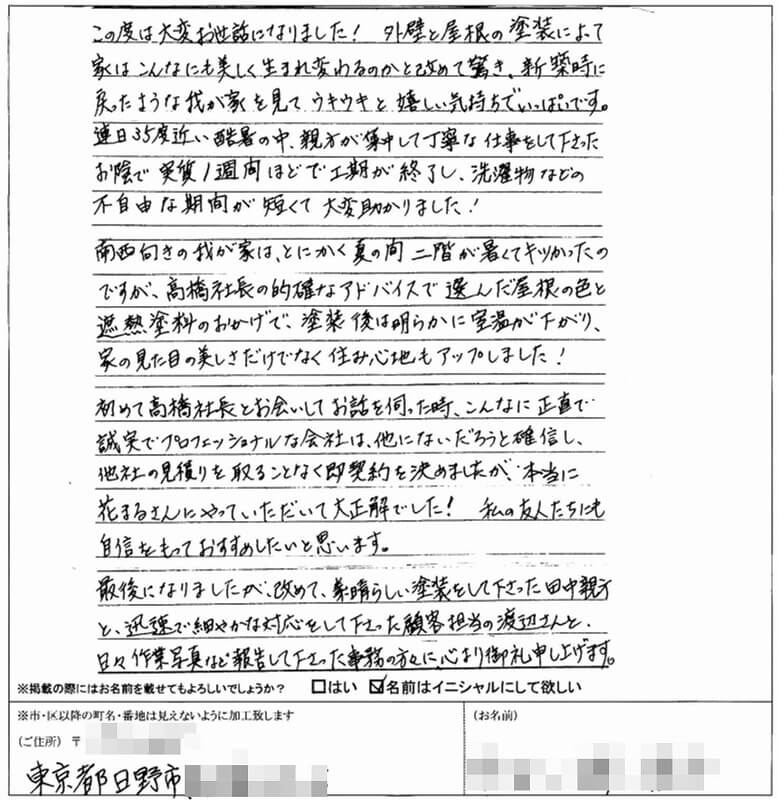 この度は大変お世話になりました！ 外壁と屋根の塗装によって
家はこんなにも美しく生まれ変わるのかと改めて驚き、新築時に
戻ったような我が家を見てウキウキと嬉しい気持ちでいっぱいです。
連日35度近い酷暑の中、親方が集中して丁寧な仕事をして下さった
お陰で実質1週間ほどで工期が終了し、洗濯物などの
不自由な期間が短くて大変助かりました！
南西向きの我が家は、とにかく夏の間二階が暑くてキツかったの
ですが、高橋社長の的確なアドバイスで選んだ屋根の色と
遮熱塗料のおかげで、塗装後は明らかに室温が下がり、
家の見た目の美しさだけでなく住み心地もアップしました！
初めて高橋社長とお会いしてお話を伺った時、こんなに正直で
誠実でプロフェッショナルな会社は、他にないだろうと確信し、
他社の見積りを取ることなく即契約を決めましたが、本当に
花まるさんにやっていただいて大正解でした！ 私の友人たちにも
自信をもっておすすめしたいと思います。
最後になりましたが、改めて、素晴らしい塗装をして下さった田中親方
と、迅速で細やかな対応をして下さった顧客担当の渡辺さんと、
日々作業写真など報告して下さった事務の方々に、心より御礼申し上げます。
※掲載の際にはお名前を載せてもよろしいでしょうか？ □はい ☑名前はイニシャルにして欲しい
※市・区以降の町名・番地は見えないように加工致します
（お名前）
（ご住所） 〒
東京都日野市